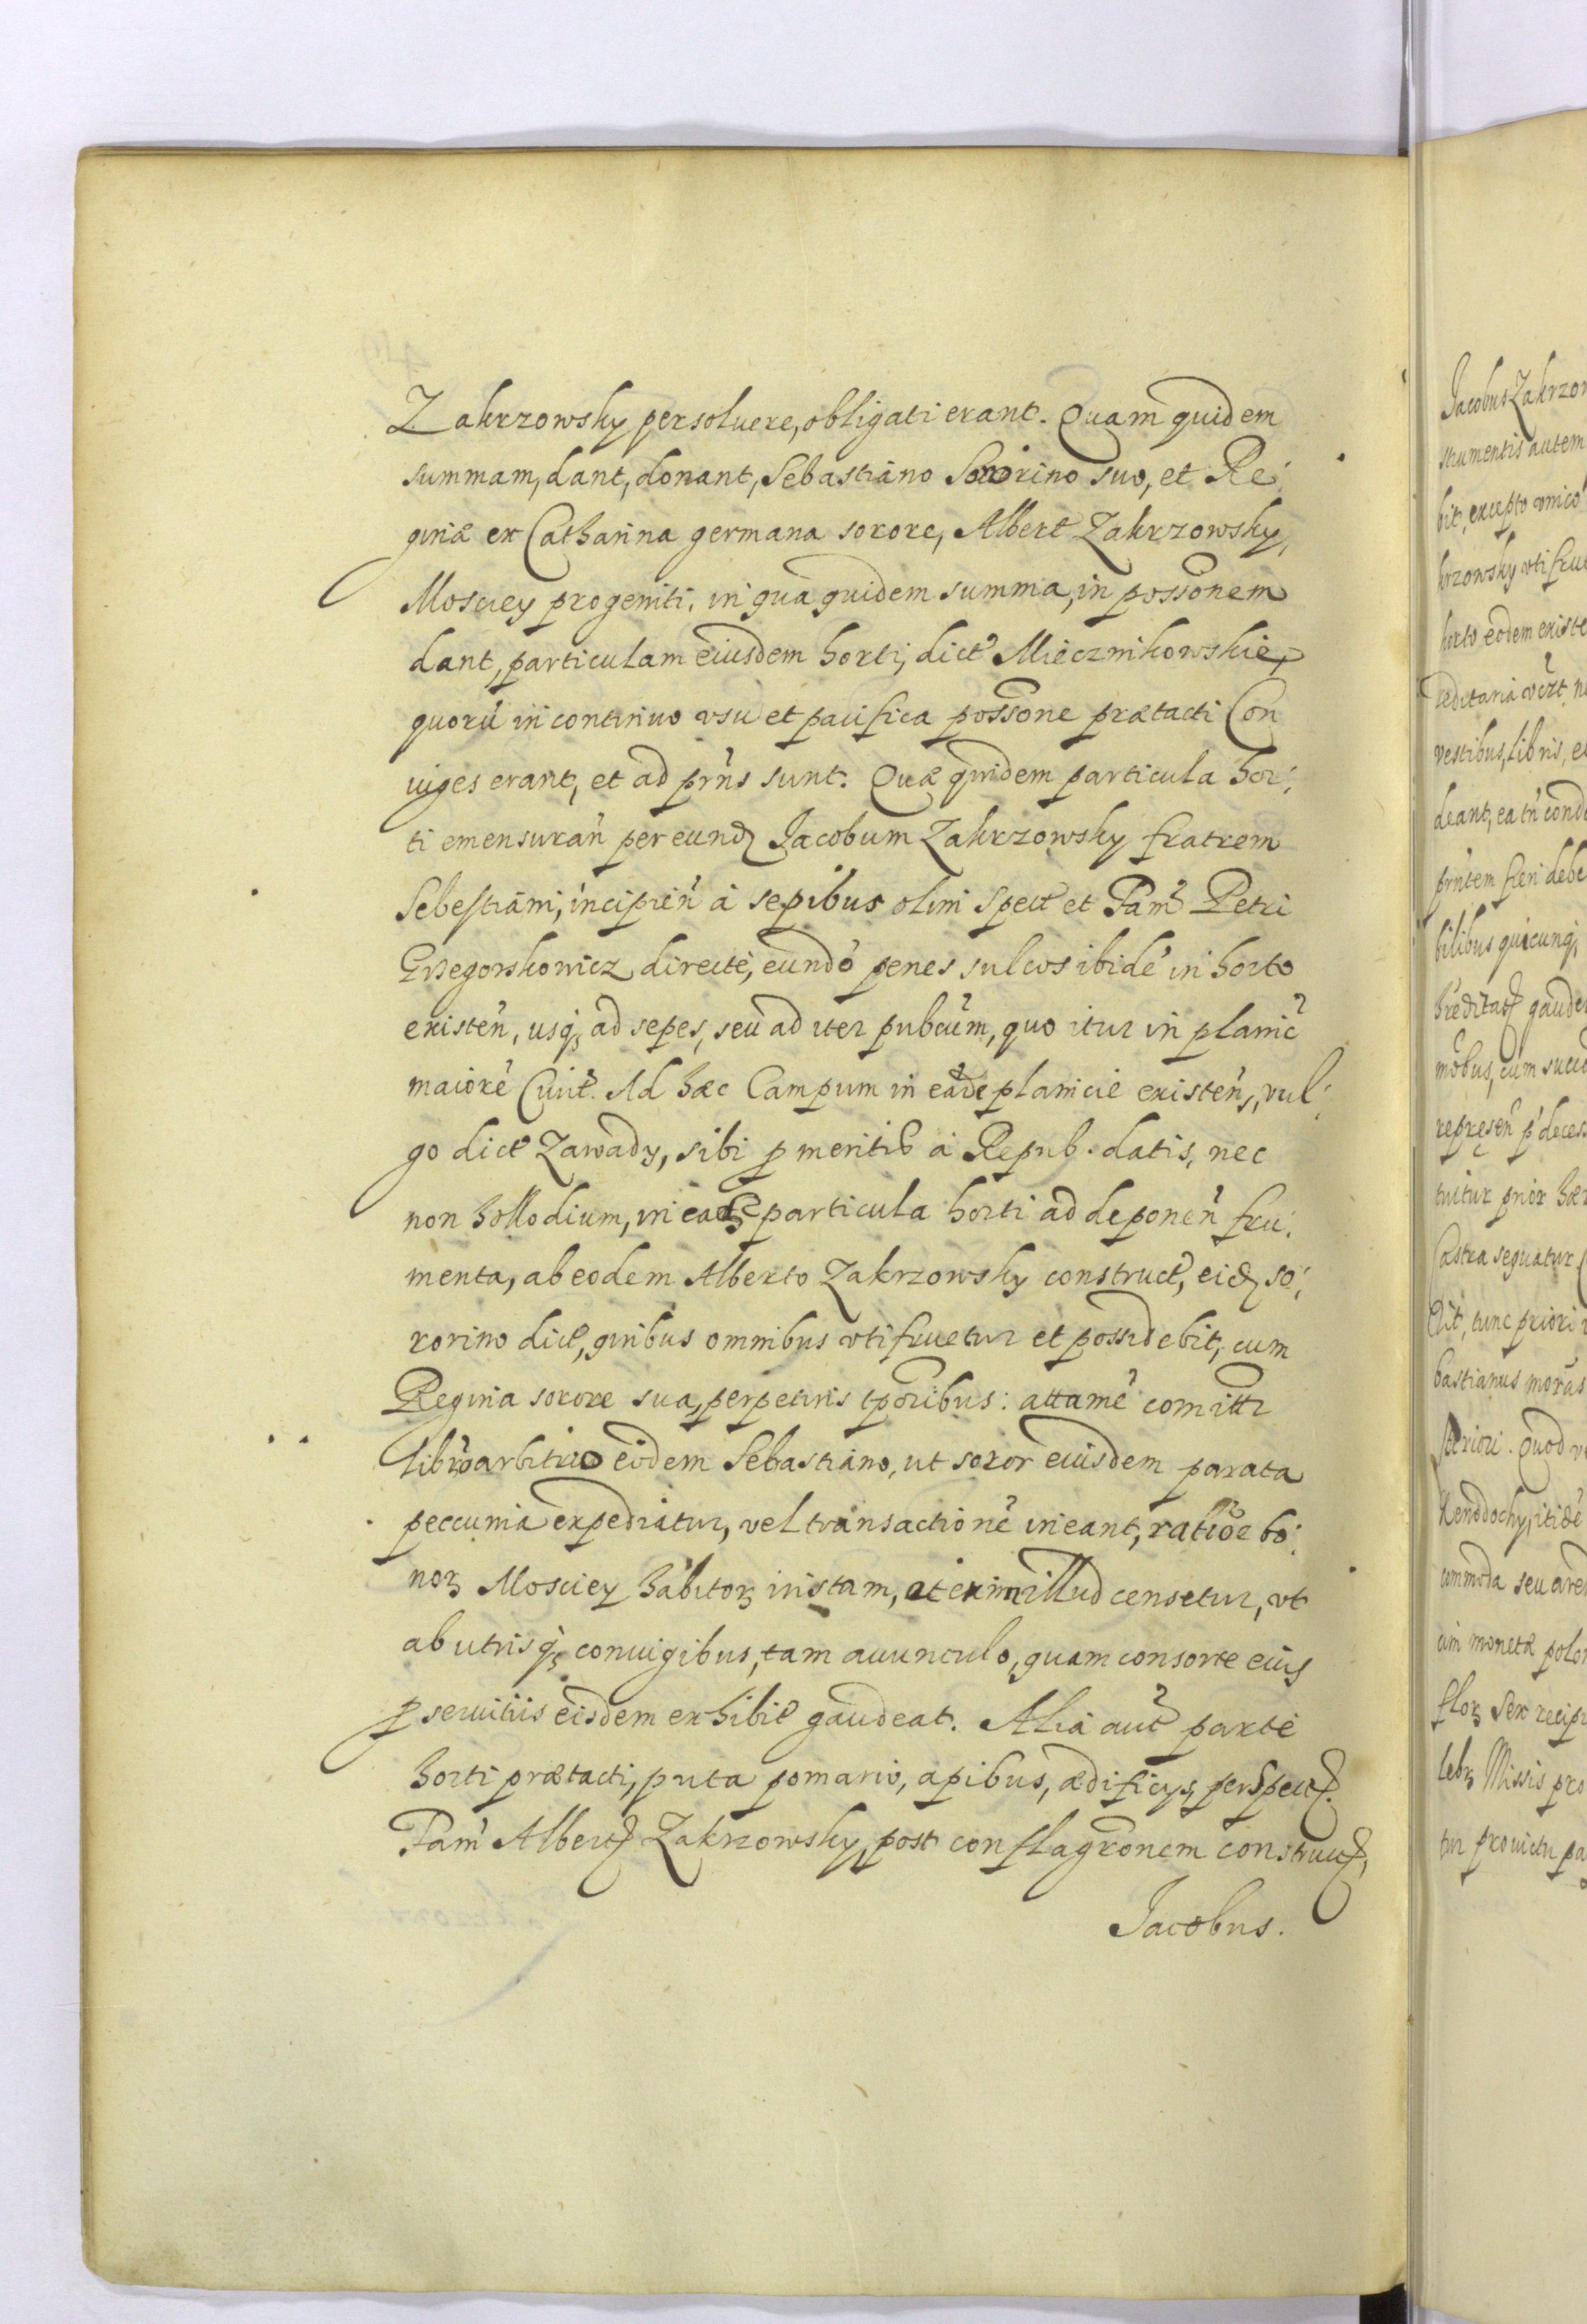 Zakrzowsky persoluere, obligati erant. Quam quidem
summam, dant, donant, Sebastiano Sororino suo, et Re:
ginæ ex Catharina germana sorore, Albert Zakrzowsky,
Mosciey progeniti, in qua quidem summa, in possõnem
dant, particulam eiusdem horti, dict Miecznikowskie,
quorũ in continuo vsu et pacifica possõne prætacti Con
iuges erant, et ad prñs sunt. Quæ quidem particula hor:
ti emensurañ per eund Jacobum Zakrzowsky fratrem
Sebestiani, incipień à sepibus olim Spect et Fam Petri
Grzegorskowicz directè, eundo penes sulcos ibidẽ in horto
existeñ, usq ad sepes, seu ad iter pubcũm, quo itur in planiẽ
maiorẽ Ciuit. Ad hæc Campum in eãde planicie existeñ, vul:
go dict Zawady, sibi p meritis à Repub. datis, nec
non hollodium, in ead particula horti ad deponeñ fru:
menta, ab eodem Alberto Zakrzowsky construct, eid so:
rorino dict, quibus omnibus vti fruetur et possidebit, cum
Regina sorore sua, perpetuis tporibus: attamẽ comittr
libro arbitrio eidem Sebastiano, ut soror eiusdem parata
peccunia expediatur, vel transactionẽ ineant, ratiõe bo:
noꝝ Mosciey habitoꝝ instam, etenim illud censetur, vt
ab utrisq coniugibus, tam auunculo, quam consorte eius
p seruitiis eisdem exhibit gaudeat. Alia aut parte
horti prætacti, puta pomario, apibus, ædificys, per Spect
Fam Albert Zakrzowsky, post conflagrõnem construct,
Jacobus.
Jacobus Zakrzow
strumentis autem
bit, excepto vnico
krzowsky vti frue
horto eodem existe
vestibus, libris, et
bilibus quicunq
tuitur prior
Castra sequatur
dit, tunc priori
bastianus
periori. Quod
cum monetæ polon
floꝝ Sex recipi